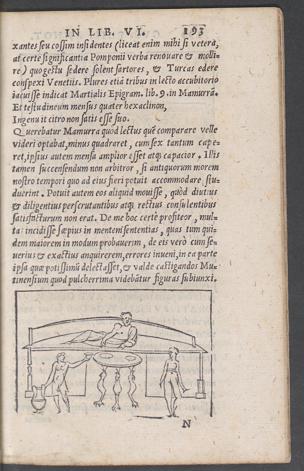 IN LIB. VI. 193
xantes seu cossim insidentes (liceat enim mihi si vetera,
at certe significantia Pomponii verba renouare & molli-
re) quo gestu sedere solent sartores, & Turcas edere
conspexi Venetiis. Plures etiā tribus in lecto accubitorio
iacuisse indicat Martialis Epigram. lib. 9. in Mamurrā.
Et testudineum mensus quater hexaclinon,
Ingenuit citro non satis esse suo.
Querebatur Mamurra quod lectus quē comparare velle
videri optabat, minus quadraret, cum sex tantum cape-
ret, ipsius autem mensa amplior esset atq; capacior. Illis
tamen succensendum non arbitror, si antiquorum morem
nostro tempori quo ad eius fieri potuit accommodare, stu-
duerint. Potuit autem eos aliquid mouisse, quòd diutius
& diligentius perscrutantibus atq; rectius consulentibus
satisfacturum non erat. De me hoc certè profiteor, mul-
ta incidisse sæpius in mentem sententias, quas tum qui-
dem maiorem in modum probauerim, de eis verò cum se-
uerius & exactius anquirerem, errores inueni, in ea parte
ipsa quæ potissimū delectasset, & valde castigandos Mu-
tinensium quòd pulcherrima videbātur figuras subiunxi.
N